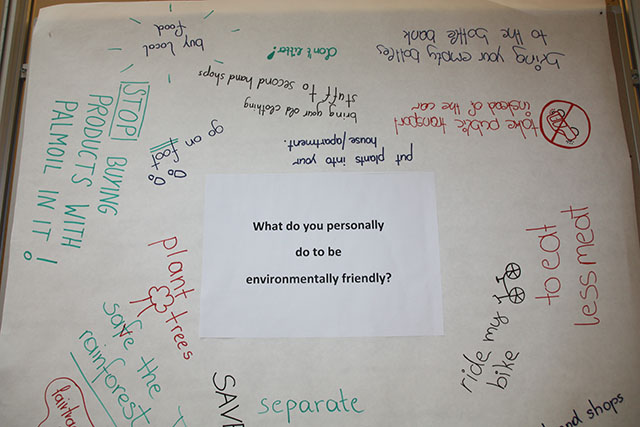 buy local
food
don't litter!
bring your empty bottles
to the bottle bank
bring your old clothing
stuff to second hand shops
take public transport
instead of the car
put plants into your
house/apartment.
go on
foot
STOP! BUYING
PRODUCTS WITH
PALMOIL IN IT!
What do you personally
do to be
environmentally friendly?
to eat
less meat
plant
trees
ride my
bike
safe the
rainforest
SAVE
separate
and shops